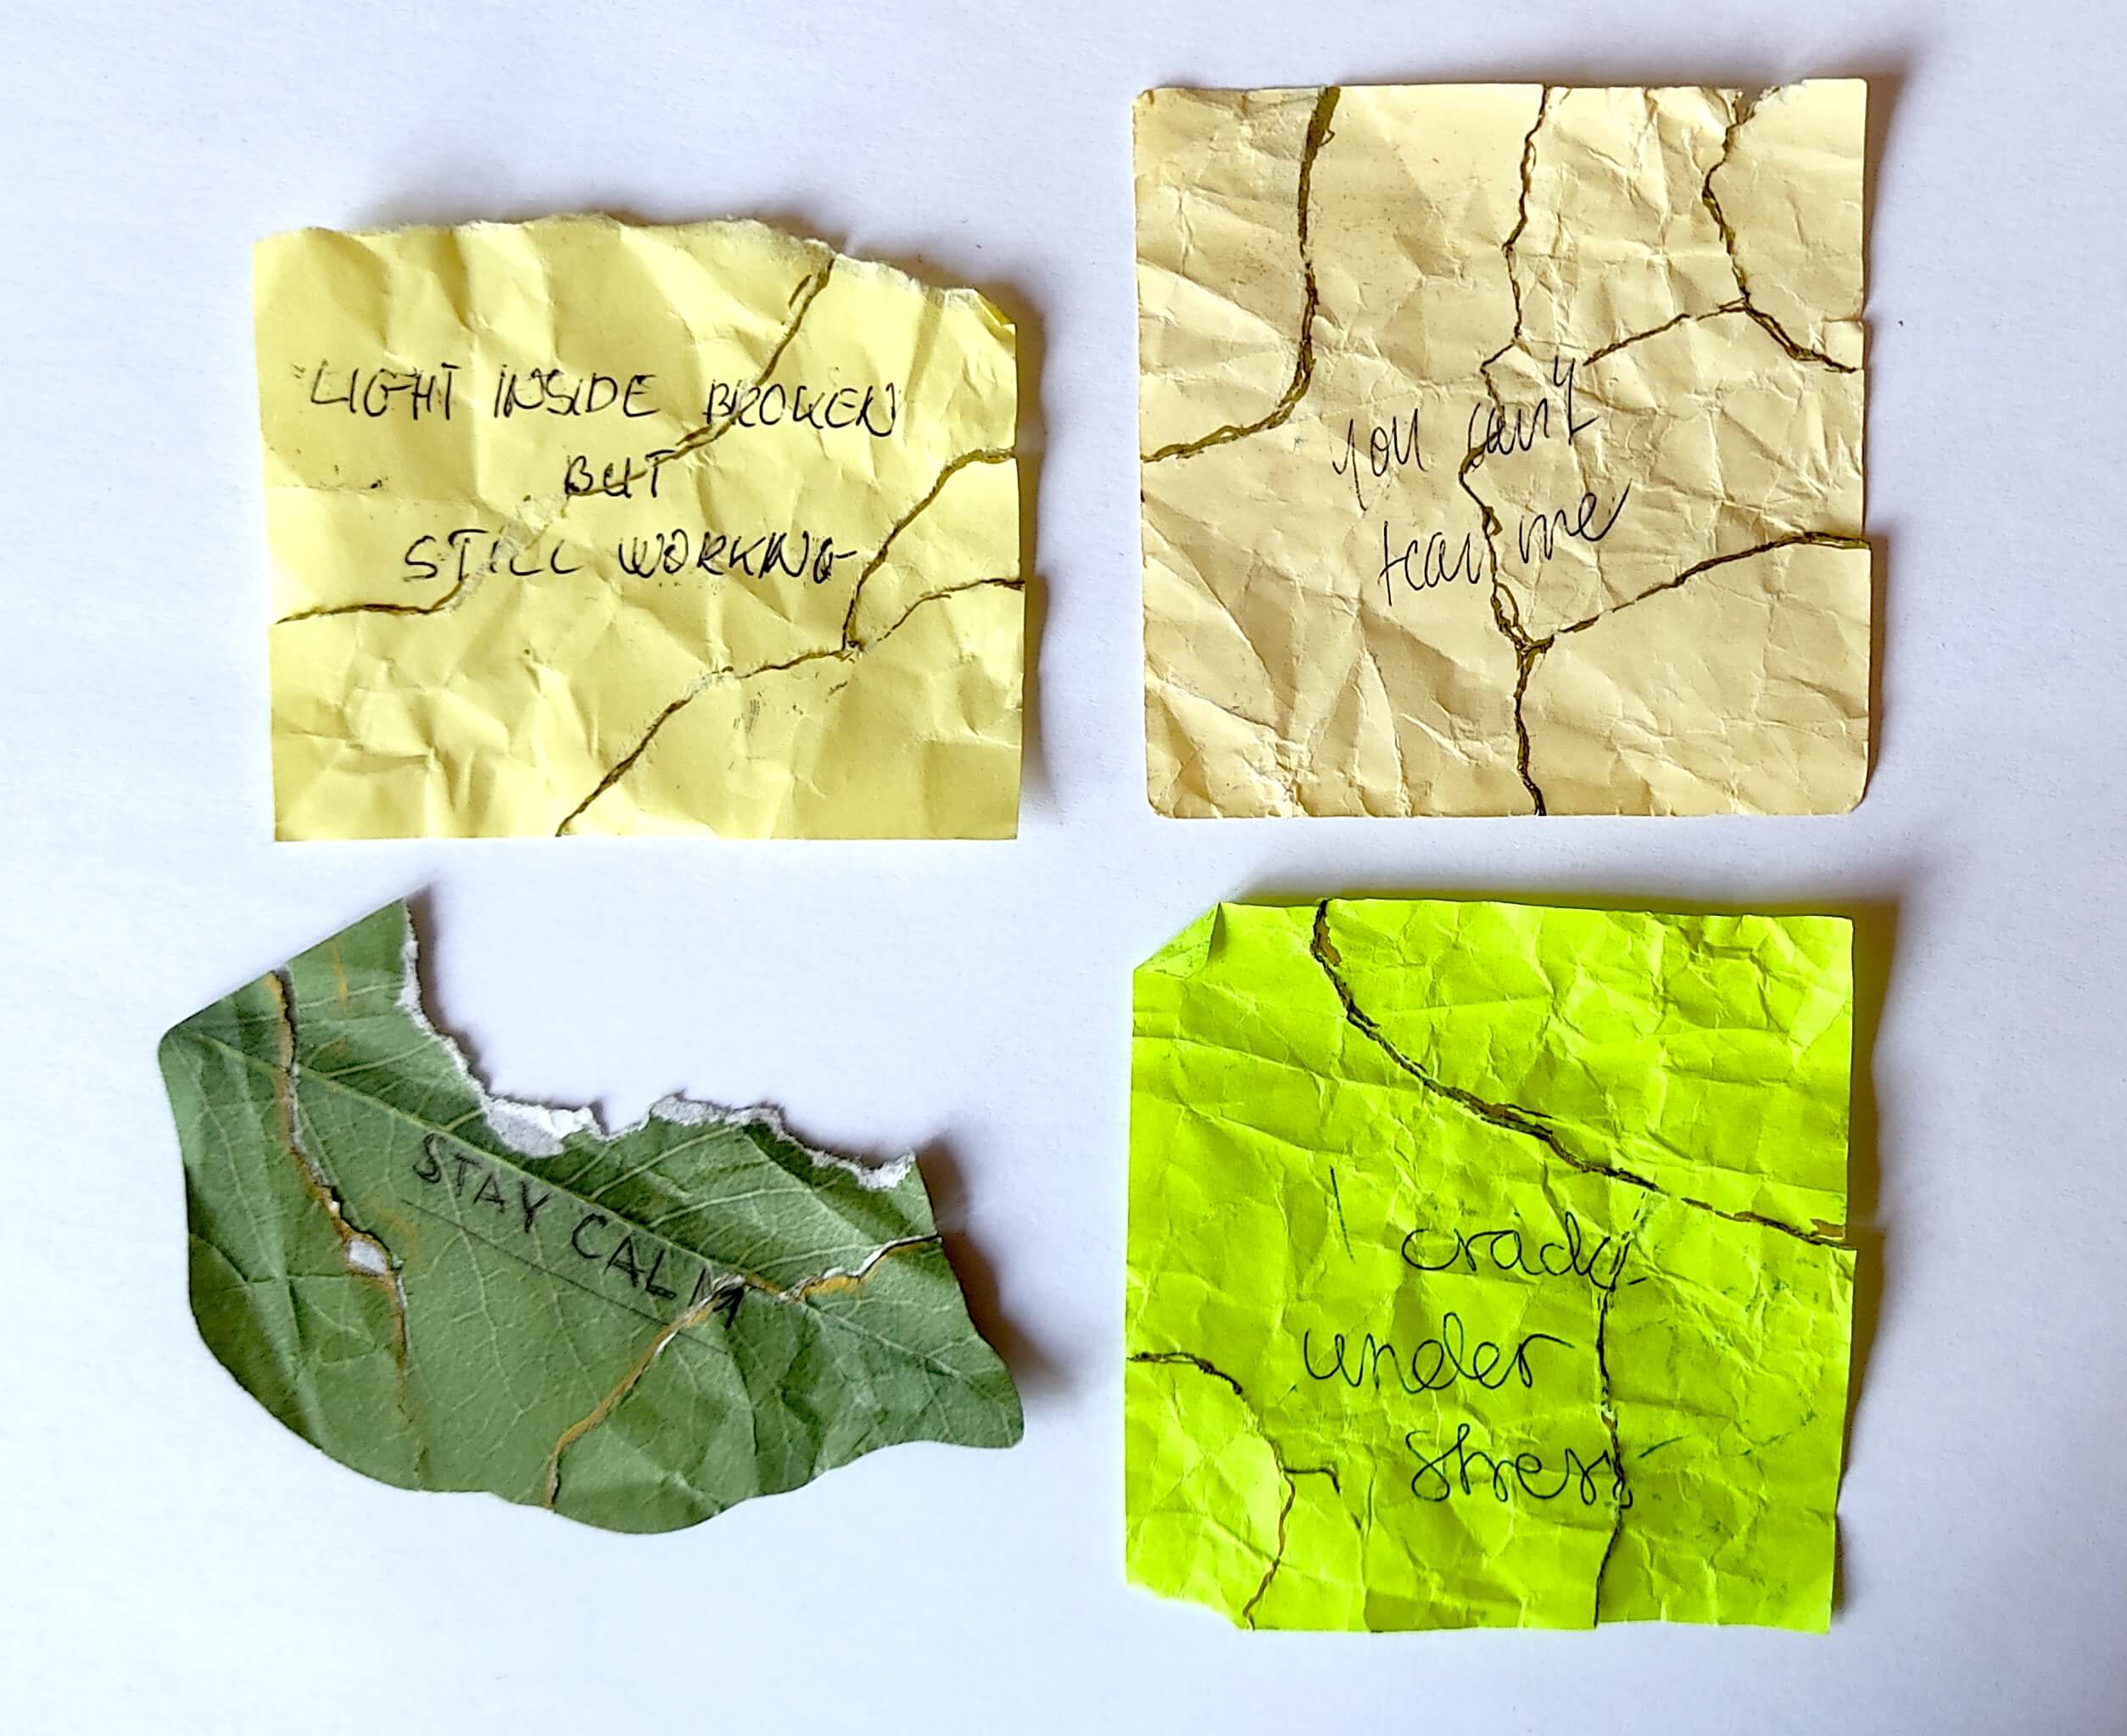 "LIGHT INSIDE BROKEN
BUT
STILL WORKING
You can't
tear me
STAY CALM
I crack
under
stress